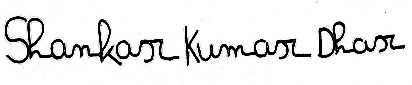 Shankar Kumar Dhar